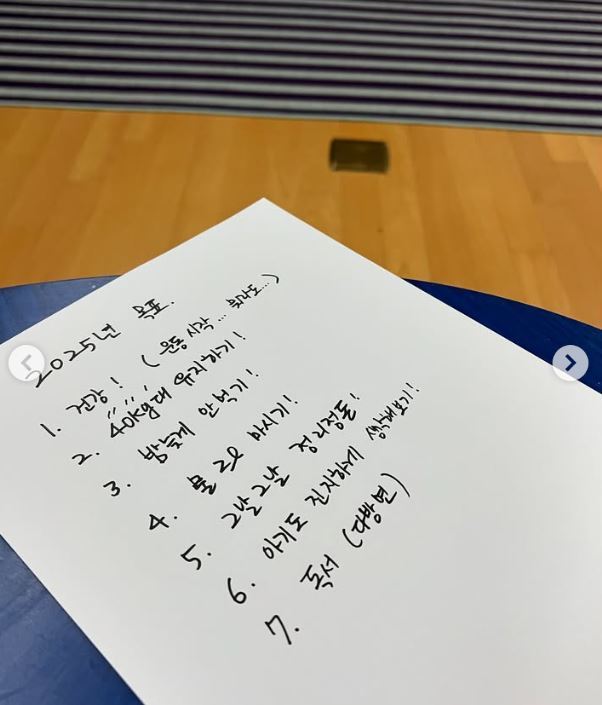 2025년 목표.
1. 건강! (운동 시작... 뭐라도...)
2. 40kg대 유지하기!
3. 밤늦게 안 먹기!
4. 물 2l 마시기!
5. 그날그날 정리정돈!
6. 아기도 진지하게 생각해보기!
7. 독서 (다방면)